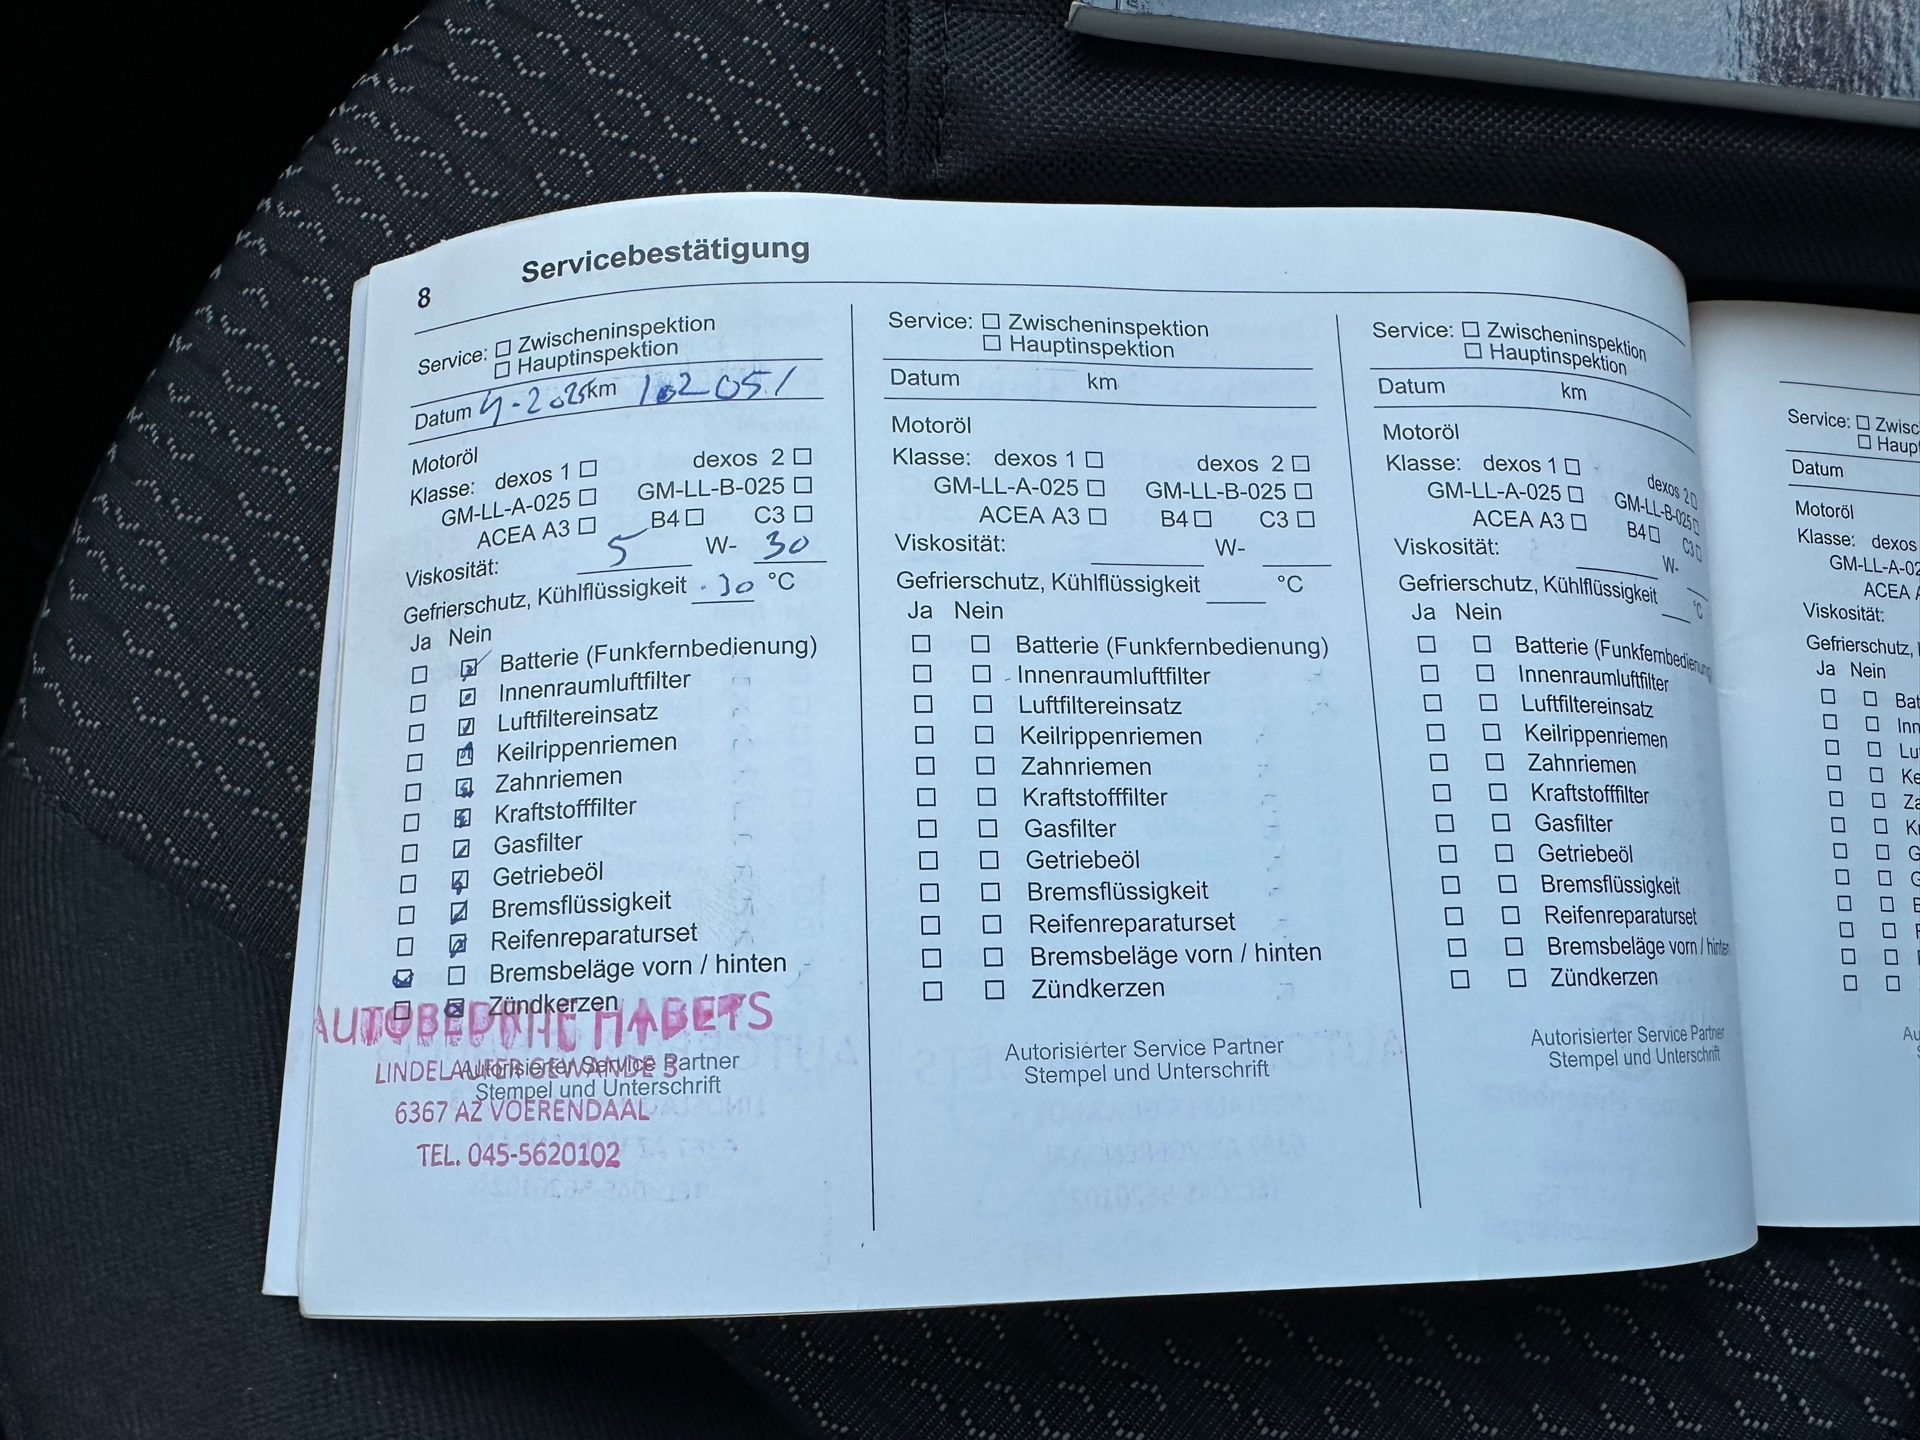 8 Servicebestätigung
Service: ☐ Zwischeninspektion
☐ Hauptinspektion
Datum 4-2025 km 102051
Motoröl
Klasse: dexos 1 ☐ dexos 2 ☐
GM-LL-A-025 ☐ GM-LL-B-025 ☐
ACEA A3 ☐ B4 ☐ C3 ☐
Viskosität: 5 W- 30
Gefrierschutz, Kühlflüssigkeit -30 °C
Ja Nein
☐ ☑ Batterie (Funkfernbedienung)
☐ ☑ Innenraumluftfilter
☐ ☑ Luftfiltereinsatz
☐ ☑ Keilrippenriemen
☐ ☑ Zahnriemen
☐ ☑ Kraftstofffilter
☐ ☑ Gasfilter
☐ ☑ Getriebeöl
☐ ☑ Bremsflüssigkeit
☐ ☑ Reifenreparaturset
☑ ☐ Bremsbeläge vorn / hinten
☐ ☑ Zündkerzen
HABETS
LINDELAUFER GEWANDE 3
Autorisierter Service Partner
Stempel und Unterschrift
6367 AZ VOERENDAAL
TEL. 045-5620102
Service: ☐ Zwischeninspektion
☐ Hauptinspektion
Datum km
Motoröl
Klasse: dexos 1 ☐ dexos 2 ☐
GM-LL-A-025 ☐ GM-LL-B-025 ☐
ACEA A3 ☐ B4 ☐ C3 ☐
Viskosität: W-
Gefrierschutz, Kühlflüssigkeit °C
Ja Nein
☐ ☐ Batterie (Funkfernbedienung)
☐ ☐ Innenraumluftfilter
☐ ☐ Luftfiltereinsatz
☐ ☐ Keilrippenriemen
☐ ☐ Zahnriemen
☐ ☐ Kraftstofffilter
☐ ☐ Gasfilter
☐ ☐ Getriebeöl
☐ ☐ Bremsflüssigkeit
☐ ☐ Reifenreparaturset
☐ ☐ Bremsbeläge vorn / hinten
☐ ☐ Zündkerzen
Autorisierter Service Partner
Stempel und Unterschrift
Service: ☐ Zwischeninspektion
☐ Hauptinspektion
Datum km
Motoröl
Klasse: dexos 1 ☐ dexos 2 ☐
GM-LL-A-025 ☐ GM-LL-B-025 ☐
ACEA A3 ☐ B4 ☐ C3 ☐
Viskosität: W-
Gefrierschutz, Kühlflüssigkeit °C
Ja Nein
☐ ☐ Batterie (Funkfernbedienung)
☐ ☐ Innenraumluftfilter
☐ ☐ Luftfiltereinsatz
☐ ☐ Keilrippenriemen
☐ ☐ Zahnriemen
☐ ☐ Kraftstofffilter
☐ ☐ Gasfilter
☐ ☐ Getriebeöl
☐ ☐ Bremsflüssigkeit
☐ ☐ Reifenreparaturset
☐ ☐ Bremsbeläge vorn / hinten
☐ ☐ Zündkerzen
Autorisierter Service Partner
Stempel und Unterschrift
Service: ☐ Zwisc
☐ Haupt
Datum
Motoröl
Klasse: dexos
GM-LL-A-02
ACEA A
Viskosität:
Gefrierschutz,
Ja Nein
☐ ☐ Bat
☐ ☐ Inn
☐ ☐ Lu
☐ ☐ Ke
☐ ☐ Za
☐ ☐ K
☐ ☐ G
☐ ☐ G
☐ ☐ B
☐ ☐
☐ ☐
☐ ☐
Au